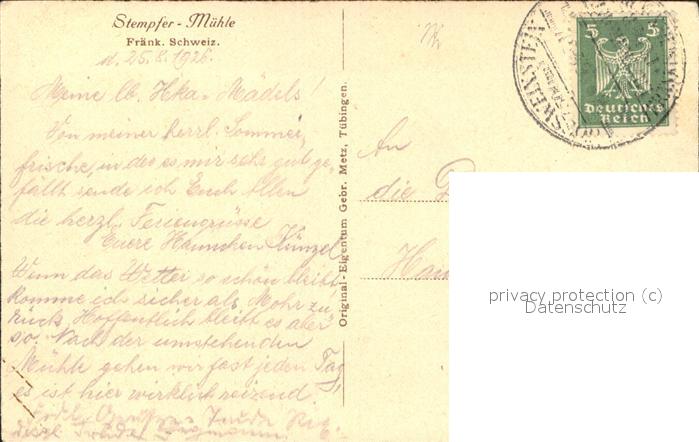 Stempfer - Mühle
Fränk. Schweiz.
d. 25.8.1926.
Meine lb. Hka-Mädels!
Von meiner herrl. Sommer,
frische, in der es mir sehr gut ge,
fällt sende ich Euch Allen
die herzl. Feriengrüsse
Euere Hannchen Künzel
Wenn das Wetter so schön bleibt
komme ich sicher als Mohr zu,
rück. Hoffentlich bleibt es aber
so. Nach der umstehenden
Mühle gehen wir fast jeden Tag,
es ist hier wirklich reizend!
Original-Eigentum Gebr. Metz, Tübingen.
An
die
5 5
Deutsches
Reich
privacy protection (c)
Datenschutz